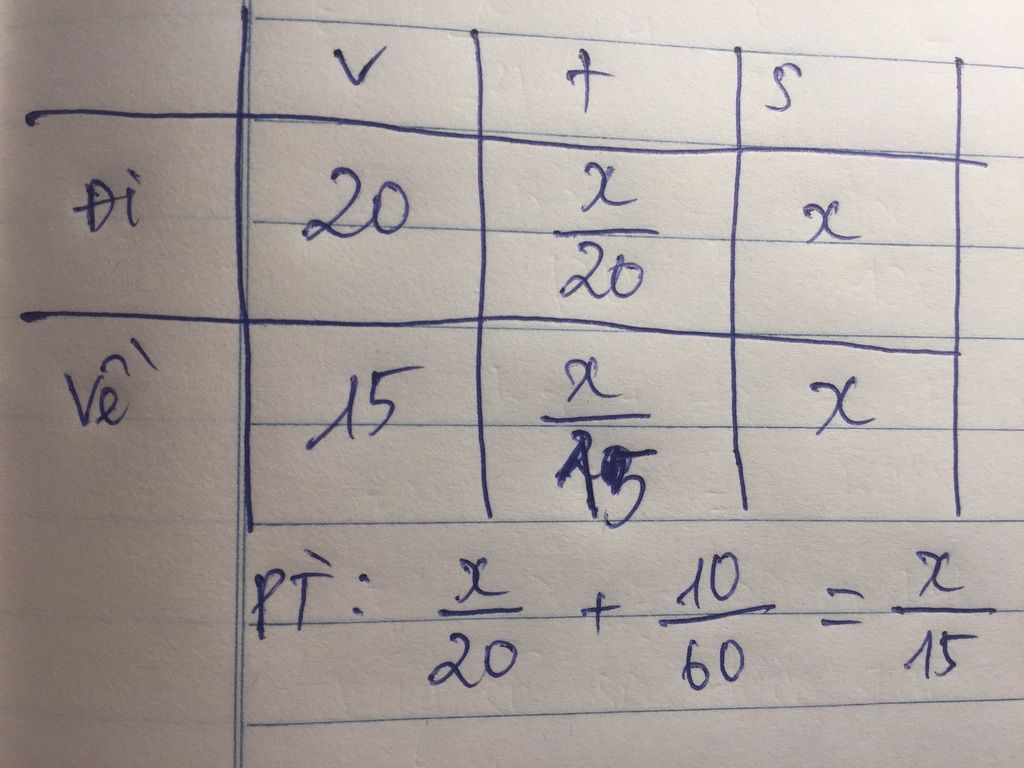 v t s
Đi 20 x/20 x
Về 15 x/15 x
PT: x/20 + 10/60 = x/15